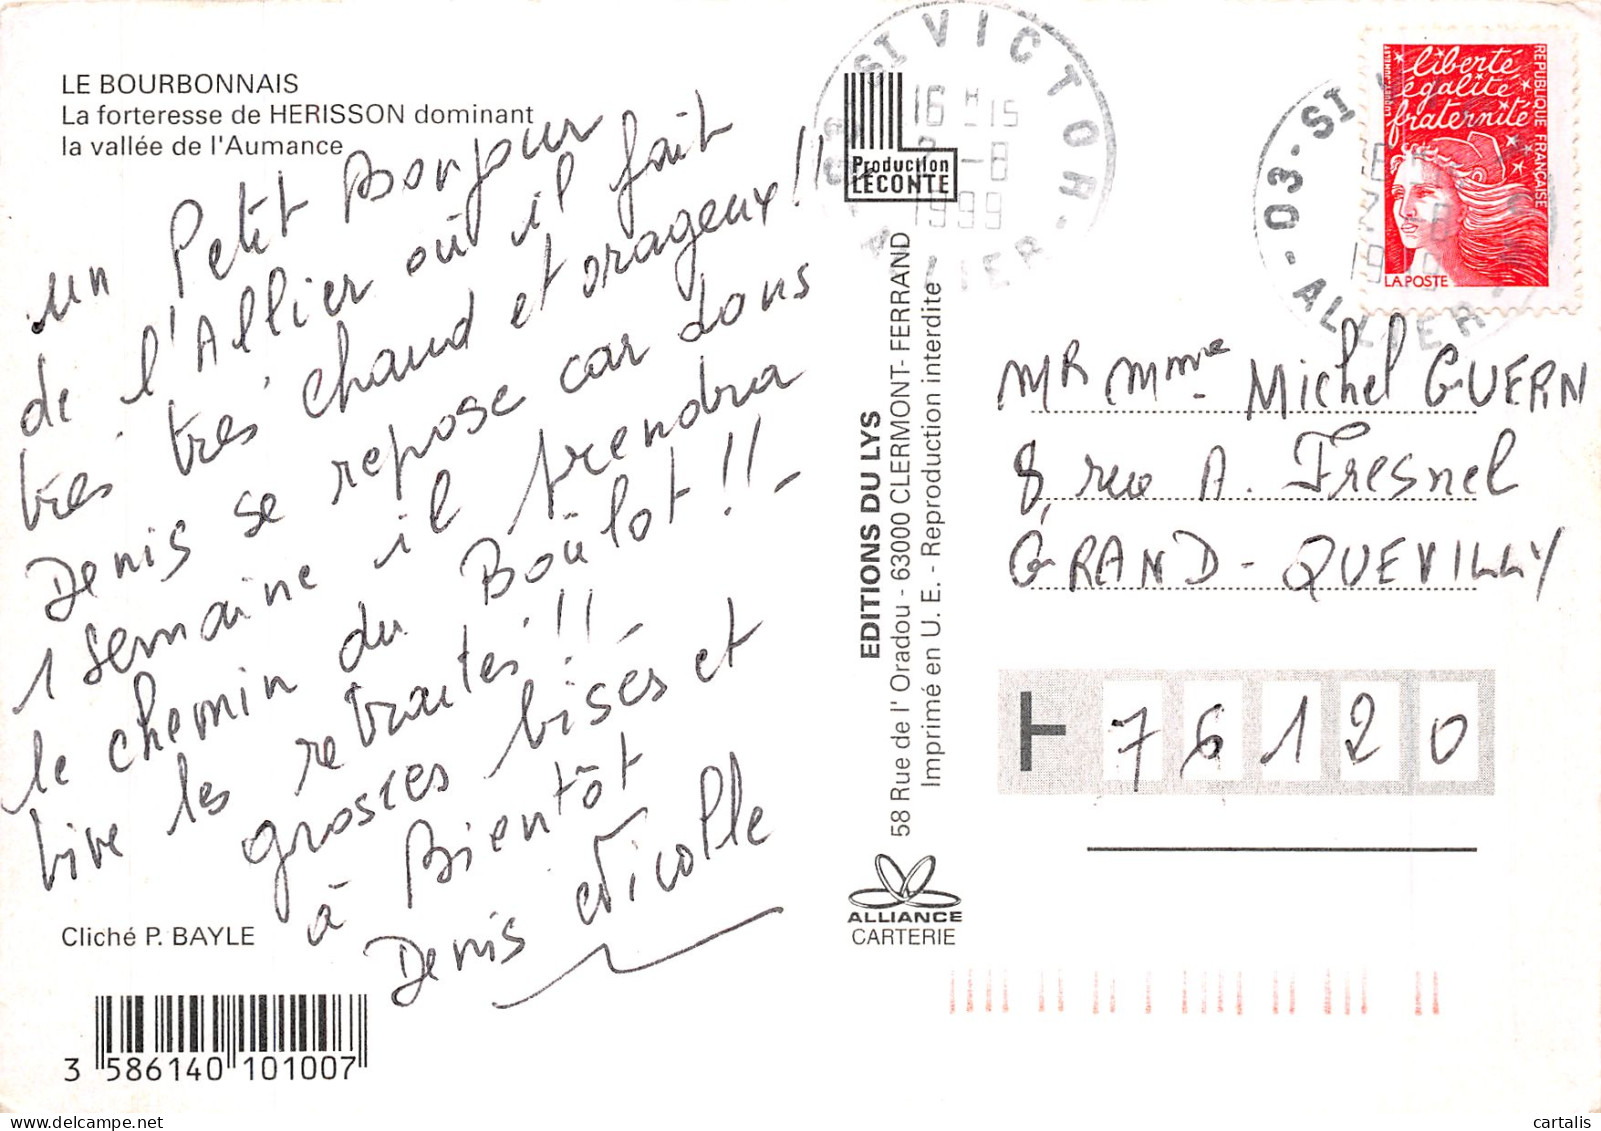 LE BOURBONNAIS
La forteresse de HERISSON dominant
la vallée de l'Aumance
un Petit Bonjour
de l'Allier où il fait
très très chaud et orageux !!
Denis se repose car dans
1 semaine il prendra
le chemin du Boulot !! -
vive les retraités !! -
grosses bises et
à Bientôt
Denis Nicolle
Cliché P. BAYLE
3 586140 101007
Production
LECONTE
EDITIONS DU LYS
58 Rue de l' Oradou - 63000 CLERMONT- FERRAND
Imprimé en U. E. - Reproduction interdite
ALLIANCE
CARTERIE
ST VICTOR
16 H -15
-8
1999
ALLIER
03 - ST
- ALLIER -
liberté
égalité
fraternité
REPUBLIQUE FRANÇAISE
LA POSTE
MR Mme Michel GUERN
8, rue A. Fresnel
GRAND - QUEVILLY
76120
cartalis